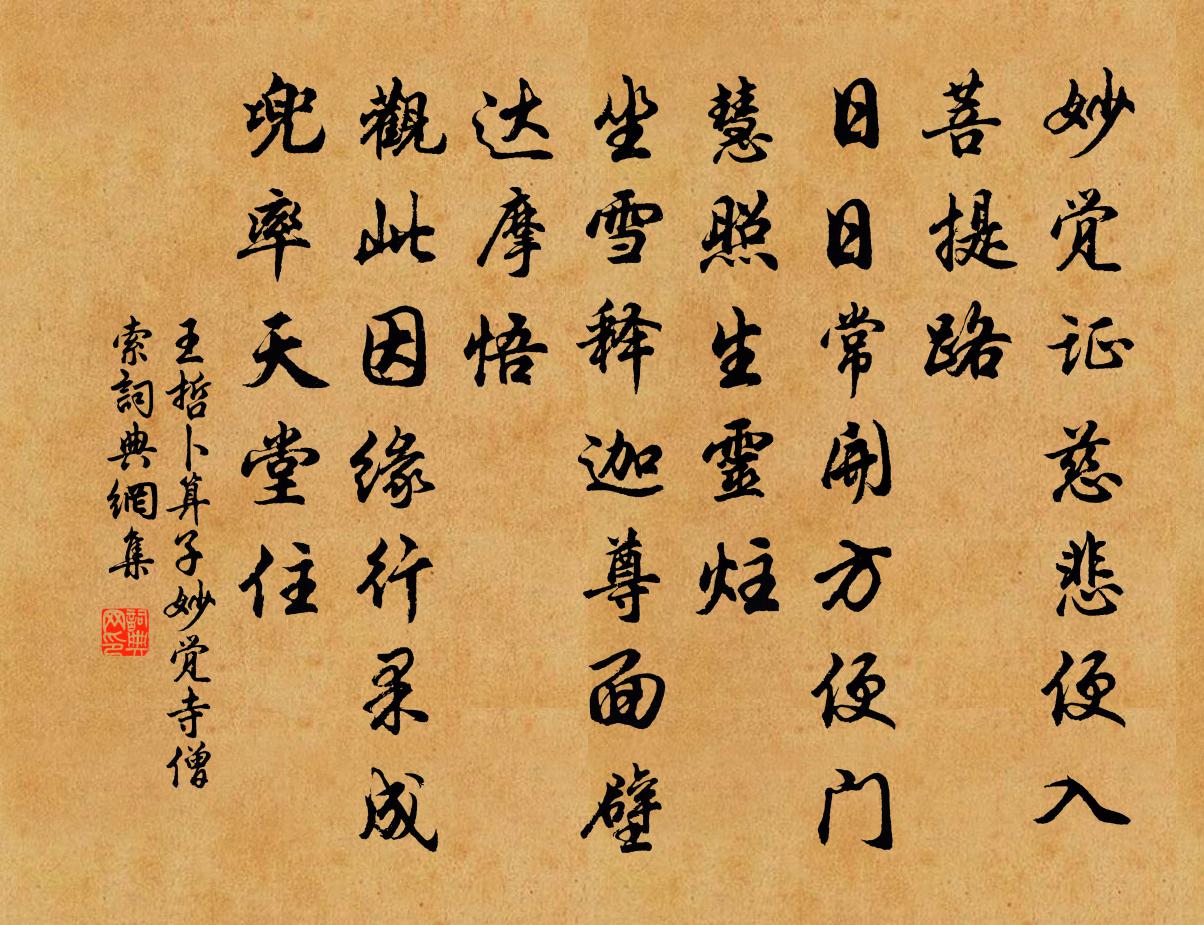 妙觉证慈悲便入
菩提路
日日常开方便门
慧照生靈炷
坐雪释迦尊面壁
达摩悟
觀此因缘行果成
兜率天堂住
王哲卜算子妙觉寺僧
索詞典網集
詞典
网印